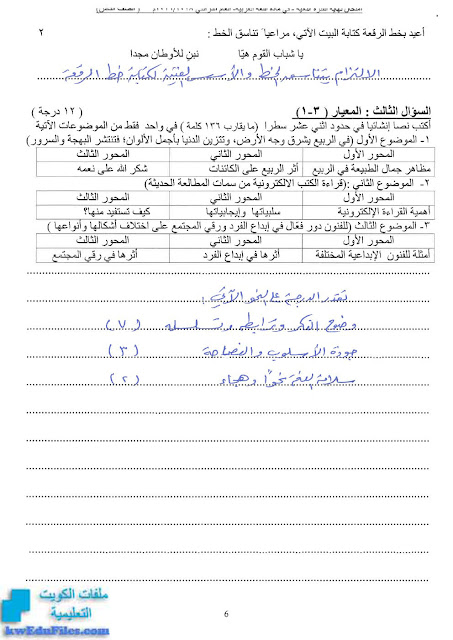 أعيد بخط الرقعة كتابة البيت الآتي، مراعياً تناسق الخط : ٢
يا شباب القوم هيا نبن للأوطان مجدا
الالتزام بتناسق الخط والأسس الفنية لكتابة خط الرقعة
السؤال الثالث : المعيار ( ٣-١) ( ١٢ درجة )
أكتب نصا إنشائيا في حدود اثني عشر سطرا (ما يقارب ١٣٦ كلمة ) في واحد فقط من الموضوعات الآتية
١- الموضوع الأول (في الربيع يشرق وجه الأرض، وتتزين الدنيا بأجمل الألوان؛ فتنتشر البهجة والسرور)
المحور الأول المحور الثاني المحور الثالث
مظاهر جمال الطبيعة في الربيع أثر الربيع على الكائنات شكر الله على نعمه
٢- الموضوع الثاني :(قراءة الكتب الالكترونية من سمات المطالعة الحديثة)
المحور الأول المحور الثاني المحور الثالث
أهمية القراءة الإلكترونية سلبياتها وإيجابياتها كيف تستفيد منها؟
٣- الموضوع الثالث :(للفنون دور فعّال في إبداع الفرد ورقي المجتمع على اختلاف أشكالها وأنواعها )
المحور الأول المحور الثاني المحور الثالث
أمثلة للفنون الإبداعية المختلفة أثرها في إبداع الفرد أثرها في رقي المجتمع
تقدر الدرجة على النحو الآتي :
وضوح الفكر وترابطه وتسلسله ( ٧ )
جودة الأسلوب والفصاحة ( ٣ )
سلامة اللغة نحوًا وهجاء ( ٢ )
ملفات الكويت
التعليمية
kwEduFiles.com
6